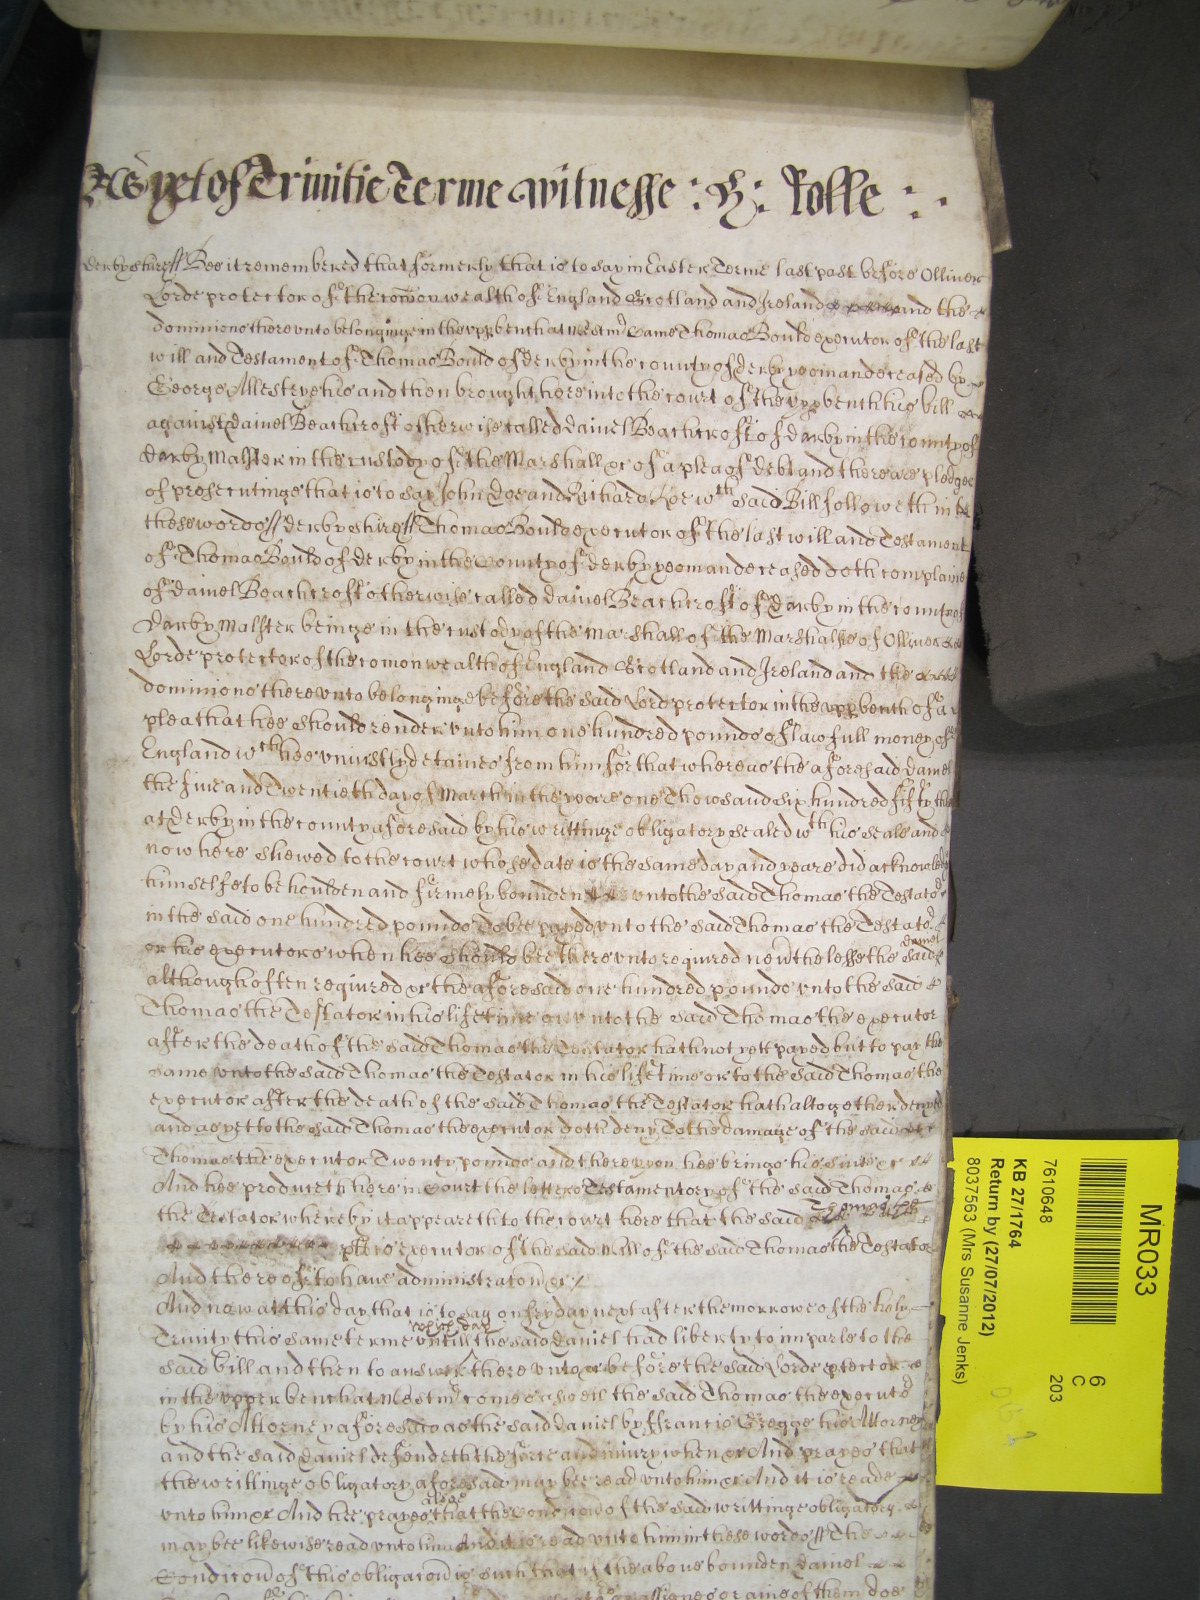 As yet of Trinitie Terme Witnesse : H : Rolle : .
Derbyshire ss Bee it remembered that formerly that is to say in Easter Terme last past before Olliver
Lorde protector of the comon wealth of England Scotland and Ireland and the
dominions thereunto belonginge in the upp bench at Westmr Came Thomas Bould executor of the last
will and Testament of Thomas Bould of Derby in the county of Derby yeoman deceased by
George Mestrye his and then brought here into the court of the upp bench his bill
against Daniel Beachcroft otherwise called Daniel Beachcroft of Darby in the county of
Darby Malster in the custody of the Marshall &c of a plea of debt and there are pledges
of prosecutinge that is to say John Doe and Richard Roe wch said Bill followeth in
these words ss Derbyshire ss Thomas Bould executor of the last will and Testament
of Thomas Bould of Derby in the County of Derby yeoman deceased doth complaine
of Daniel Beachcroft otherwise called Daniel Beachcroft of Darby in the county of
Darby Malster beinge in the custody of the Marshall of the Marshalse of Olliver
Lorde protector of the comon wealth of England Scotland and Ireland and the
dominions thereunto belonginge before the said Lord protector in the upp bench of a
plea that hee should render unto him one hundred pounds of lawfull money of
England wch hee uniustly detaines from him for that whereas the aforesaid Daniel
the five and Twentieth day of March in the yeare one Thowsand six hundred fifty
at Derby in the county aforesaid by his writtinge obligatory sealed wth his seale and
now here shewed to the court whose date is the same day and yeare did acknowledge
himselfe to be houlden and firmely bounden unto the said Thomas the Testator
in the said one hundred pounds To bee payed unto the said Thomas the Testator
or his executors when hee should bee thereunto required nevthelesse the said Daniel
although often required &c the aforesaid one hundred pounds unto the said
Thomas the Testator in his life time or unto the said Thomas the executor
after the death of the said Thomas the Testator hath not yett payed but to pay the
same unto the said Thomas the Testator in his life time or to the said Thomas the
executor after the death of the said Thomas the Testator hath altogether denyed
and as yet to the said Thomas the executor doth deny To the damage of the said
Thomas the executor Twenty pounds and thereupon hee brings his suite &c
And hee produceth here in Court the letters Testamentory of the said Thomas
the Testator whereby it appeareth to the court here that the said Thomas
is executor of the said Will of the said Thomas the Testator
And thereof to have administraton &c
And now at this day that is to say on fryday next after the morrowe of the holy
Trinity this same terme untill which day the said Daniel had liberty to imparle to the
said bill and then to answer thereunto &c before the said Lorde ptector
in the upper bench at Westmr comes aswell the said Thomas the executor
by his Attorney aforesaid as the said Daniel by Francis Gregge his Attorney
and the said Daniel defendeth the force and iniury when &c And prayes that
the writtinge obligatory aforesaid may bee read unto him &c And it is reade
unto him &c And hee prayes alsoe that the Condicon of the said writtinge obligatory
may bee likewise read unto him And it is read unto him in these words ss The
Condicon of this obligacon is such that if the above bounden Daniel
assignes or anie of them doe
MR033
7610648
6
C
203
KB 27/1764
Return by (27/07/2012)
8037563 (Mrs Susanne Jenks)